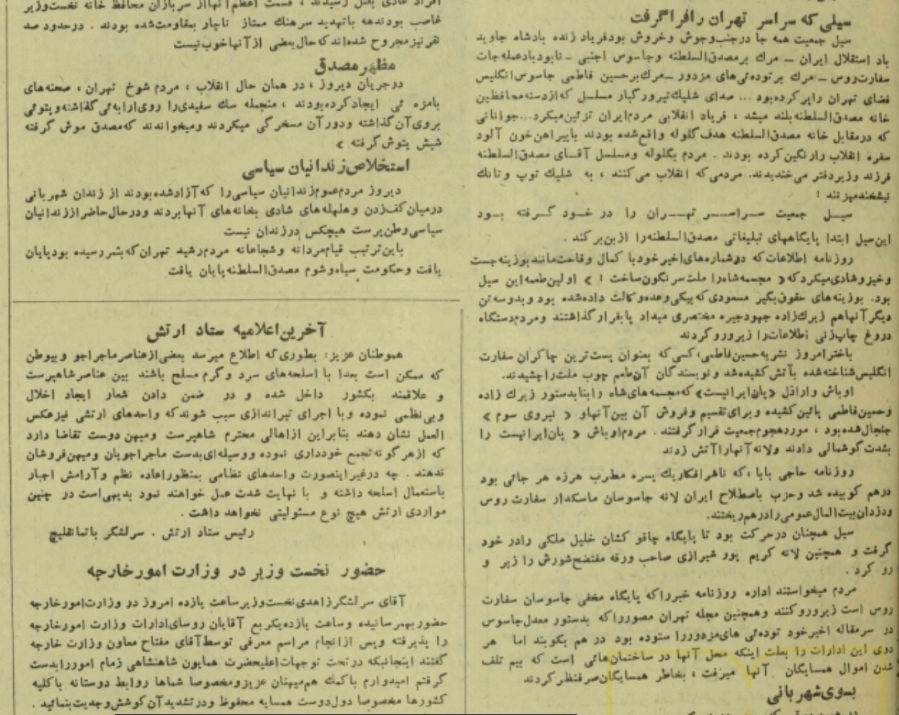 سیلی که سراسر تهران را فرا گرفت
سیل جمعیت همه جا در جنب‌وجوش و خروش بود فریاد زنده باد شاه جاوید
باد استقلال ایران ــ مرگ بر مصدق‌السلطنه و جاسوس اجنبی ــ نابود باد عمله‌جات
سفارت روس ــ مرگ بر توده‌ئی‌های مزدور ــ مرگ بر حسین فاطمی جاسوس انگلیس
فضای تهران را پر کرده بود ... صدای شلیک تیر و رگبار مسلسل که از دسته محافظین
خانه مصدق‌السلطنه بلند میشد ، فریاد انقلابی مردم ایران تزئین میکرد...جوانانی
که در مقابل خانه مصدق‌السلطنه هدف گلوله واقع شده بودند با پیراهن خون آلود
سفره انقلاب را رنگین کرده بودند . مردم بگلوله و مسلسل آقای مصدق‌السلطنه
فرزند وزیر دفتر می‌خندیدند. مردمی که انقلاب می‌کنند ، به شلیک توپ و تانک
نیشخند میزنند !
سیل جمعیت سراسر تهران را در خود گرفته بود
این سیل ابتدا پایگاههای تبلیغاتی مصدق‌السلطنه را از بن بر کند .
روزنامه اطلاعات که در شماره‌های اخیر خود با کمال وقاحت مانند بوزینه جست
و خیز و شادی میکرد که « مجسمه شاه را ملت سرنگون ساخت ! » اولین طعمه این سیل
بود. بوزینه‌های حقوق‌بگیر مسعودی که بیکی وعده وکالت داده شده بود و بدو سه تن
دیگر آنها هم زیرک‌زاده جهود جیره مختصری میداد پا بفرار گذاشتند و مردم دستگاه
دروغ چاپ‌زنی اطلاعات را زیر و رو کردند
باختر امروز نشریه حسین فاطمی ، کسی که بعنوان پست‌ترین چاکران سفارت
انگلیس شناخته شده بآتش کشیده شد و نویسندگان آن طعم چوب ملت را چشیدند.
اوباش و اراذل «پان‌ایرانیست» که مجسمه‌های شاه را بنا بدستور زیرک زاده
و حسین فاطمی پائین کشیده و برای تقسیم و فروش آن بین آنها و « نیروی سوم »
جنجال شده بود ، مورد هجوم جمعیت قرار گرفتند . مردم اوباش « پان‌ایرانیست را
بشدت گوشمالی دادند و لانه آنها را آتش زدند
روزنامه حاجی بابا ، که ناشر افکار یک پسره مطرب هرزه هر جائی بود
درهم کوبیده شد و حزب باصطلاح ایران لانه جاسوسان ماسکدار سفارت روس
و دزدان بیت‌المال عمومی را در هم ریختند.
سیل همچنان در حرکت بود تا پایگاه چاقو کشان خلیل ملکی را در خود
گرفت و همچنین لانه کریم پور شیرازی صاحب ورقه مفتضح شورش را زیر و
رو کرد .
مردم میخواستند اداره روزنامه خبر را که پایگاه مخفی جاسوسان سفارت
روس است زیر و رو کنند و همچنین مجله تهران مصور را که بدستور معدل جاسوس
در سرمقاله اخیر خود توده‌ئی های مزدور را ستوده بود در هم بکوبند اما هر
دوی این ادارات را بعلت اینکه محل آنها در ساختمان‌هائی است که بیم تلف
شدن اموال همسایگان آنها میرفت ، بخاطر همسایگان صرفنظر کردند
بسوی شهربانی
غاصب بودند همه با تهدید سرهنگ ممتاز ناچار بمقاومت شده بودند . در حدود صد
نفر نیز مجروح شده‌اند که حال بعضی از آنها خوب نیست
مظهر مصدق
در جریان دیروز ، در همان حال انقلاب ، مردم شوخ تهران ، صحنه‌های
بامزه ئی ایجاد کرده بودند ، منجمله سک سفیدی را روی ارابه ئی گذاشته و پتوئی
بروی آن گذاشته و دور آن مسخرگی میکردند و میخواندند که مصدق موش گرفته
شپش بتوش گرفته »
استخلاص زندانیان سیاسی
دیروز مردم عموم زندانیان سیاسی را که آزاد شده بودند از زندان شهربانی
در میان کف‌زدن و هلهله‌های شادی بخانه‌های آنها بردند و در حال حاضر از زندانیان
سیاسی وطن‌پرست هیچکس در زندان نیست
باین ترتیب قیام مردانه و شجاعانه مردم رشید تهران که بثمر رسیده بود پایان
یافت و حکومت سیاه و شوم مصدق‌السلطنه پایان یافت
آخرین اعلامیه ستاد ارتش
هموطنان عزیز: بطوری که اطلاع میرسد بعضی از عناصر ماجراجو و بیوطن
که ممکن است بعدا با اسلحه‌های سرد و گرم مسلح باشند بین عناصر شاهپرست
و علاقمند بکشور داخل شده و در ضمن دادن شعار ایجاد اخلال
و بی‌نظمی نموده و با اجرای تیراندازی سبب شوند که واحدهای ارتشی نیز عکس
العمل نشان دهند بنابراین از اهالی محترم شاهپرست و میهن دوست تقاضا دارد
که از هر گونه تجمع خودداری نموده و وسیله‌ای بدست ماجراجویان و میهن فروشان
ندهند . چه در غیر اینصورت واحدهای نظامی بمنظور اعاده نظم و آرامش اجبار
باستعمال اسلحه داشته و با نهایت شدت عمل خواهند نمود بدیهی است در چنین
مواردی ارتش هیچ نوع مسئولیتی نخواهد داشت .
رئیس ستاد ارتش . سرلشگر باتمانقلیچ
حضور نخست وزیر در وزارت امورخارجه
آقای سرلشگر زاهدی نخست‌وزیر ساعت یازده امروز در وزارت امورخارجه
حضور بهمرسانیده و ساعت یازده و یکربع آقایان روسای ادارات وزارت امورخارجه
را پذیرفته و پس از انجام مراسم معرفی توسط آقای مفتاح معاون وزارت خارجه
گفتند اینجانب که در تحت توجهات اعلیحضرت همایون شاهنشاهی زمام امور را بدست
گرفتم امیدوارم با کمک هم‌میهنان عزیز و مخصوصا شماها روابط دوستانه با کلیه
کشورها مخصوصا دول دوست همسایه محفوظ و در تشدید آن کوشش و جدیت بنمائید .